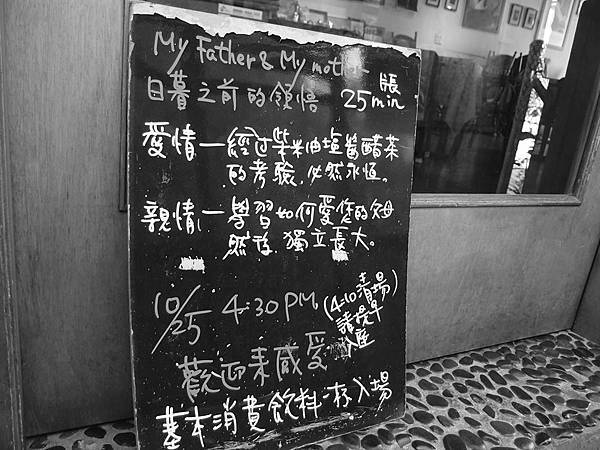 My Father & My mother
日暮之前的領悟 25min
張
愛情—經过柴米油塩醬醋茶
的考驗,必然永恒。
親情—學習如何愛您的父母
然後,獨立長大。
10/25 4:30 PM
(4:10清場)
請提早
入座
歡迎來感受
基本消費飲料一杯入場